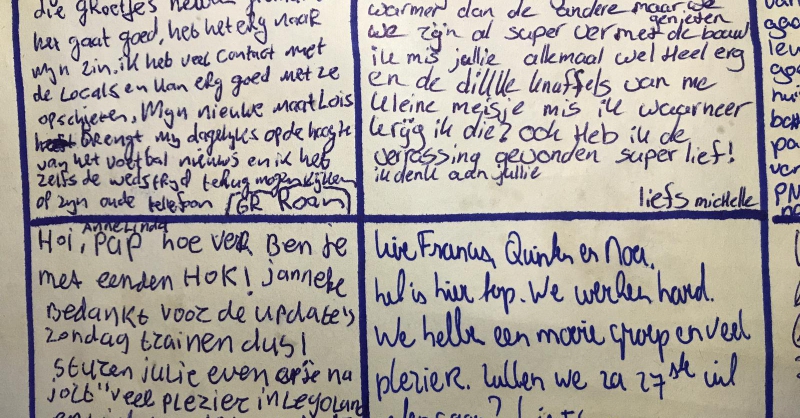 die groetjes
het gaat goed, heb het erg naar
mijn zin. ik heb veel contact met
de Locals en kan erg goed met ze
opschieten, Mijn nieuwe maat Lois
brengt mij dagelijks op de hoogte
van het voetbal nieuws en ik heb
zelfs de wedstrijd terug mogen kijken
op zijn oude telefoon GR Roan
warmer dan de andere maar we
genieten
we zijn al super ver met de bouw
ik mis jullie allemaal wel Heel erg
en de dikke knuffels van me
kleine meisje mis ik waarneer
krijg ik die? ook Heb ik de
verrassing gevonden super lief!
ik denk aan jullie
liefs michelle
Annelinda
Hoi, Pap hoe ver Ben je
met eenden HOK! janneke
Bedankt voor de update's
zondag trainen dus!
sturen julie even na
veel plezier in Legoland
Lieve Francis, Quinten en Noa,
het is hier top. We werken hard.
We hebben een mooie groep en veel
plezier. Zullen we za 27ste